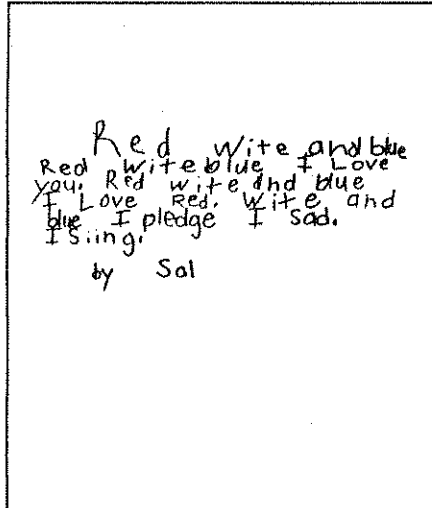 Red wite and blue
Red wite blue I Love
you. Red wite and blue
I Love Red. Wite and
blue I pledge I sad.
I siing.
by Sol